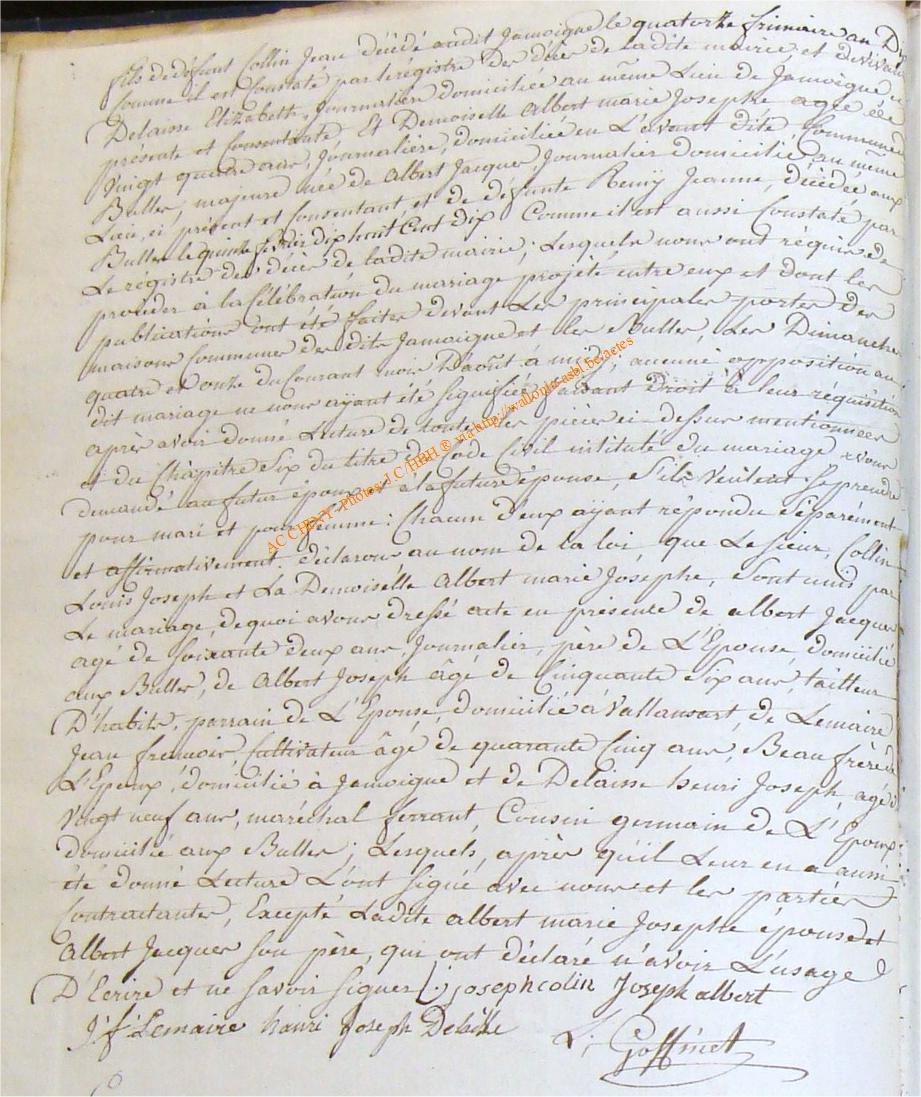 fils de défunt Collin Jean décédé audit Jamoigne le quatorze frimaire an Dix
Comme il est Constaté par le régistre des décès de ladite mairie et de vivante
Delaisse Elizabeth, Journalière domiciliée au même Lieu de Jamoigne ci
présente et Consentante. Et Demoiselle Albert marie Josephe agée de
Vingt quatre ans, Journalière, domiciliée en L'avant dite Commune de
Bulles, majeure née de Albert Jacques, Journalier domicilié au même
Lieu, ci présent et Consentant, et de défunte Remÿ Jeanne, décédée aux
Bulles le quinze février dix huit Cent dix Comme il est aussi Constaté par
Le régistre des décès de ladite mairie; Lesquels nous ont réquis de
procéder à la Célébration du mariage projété entre eux et dont les
publications ont été faites devant Les principales portes des
maisons Communes des dits Jamoigne et les Bulles, Les Dimanches
quatre et onze du Courant mois D'août à midi, aucune opposition au
dit mariage ne nous ayant été signifiée, faisant Droit à leur réquisition
après avoir donné Lecture de toutes les pièces ci-dessus mentionnées
et du Chapitre Six du titre du Code Civil intitulé du mariage, avons
demandé au futur époux et à la future épouse, S'ils Veulent Se prendre
pour mari et pour femme: Chacun d'eux ayant répondu Séparément
et affirmativement. déclarons au nom de la loi, que Le Sieur, Collin
Louis Joseph et La Demoiselle Albert marie Josephe, Sont unis par
Le mariage, de quoi avons dressé acte en présence de albert Jacques
agé de Soixante deux ans, Journalier, père de L'Epouse, domicilié
aux Bulles, de Albert Joseph âgé de Cinquante Six ans, tailleur
D'habits, parrain de L'Epouse, domicilié à Vallansart, de Lemaire
Jean françois, Cultivateur âgé de quarante Cinq ans, Beau frère de
L'Epoux, domicilié à Jamoigne et de Delaisse henri Joseph, agé de
Vingt neuf ans, maréchal ferrant, Cousin germain de L'Epoux
domicilié aux Bulles; Lesquels, après qu'il Leur en a aussi
été donné Lecture L'ont signé avec nous et les parties
Contractantes, Excepté Ladite albert marie Josephe épouse et
Albert Jacques son père, qui ont déclaré n'avoir L'usage
D'Ecrire et ne Savoir Signer L: joseph colin Joseph albert
J: f: Lemaire henri Joseph Delaisse
L; Goffinet
AC CHINY - Photos: J C/HBH ® via http://wallonia-asbl.be/actes